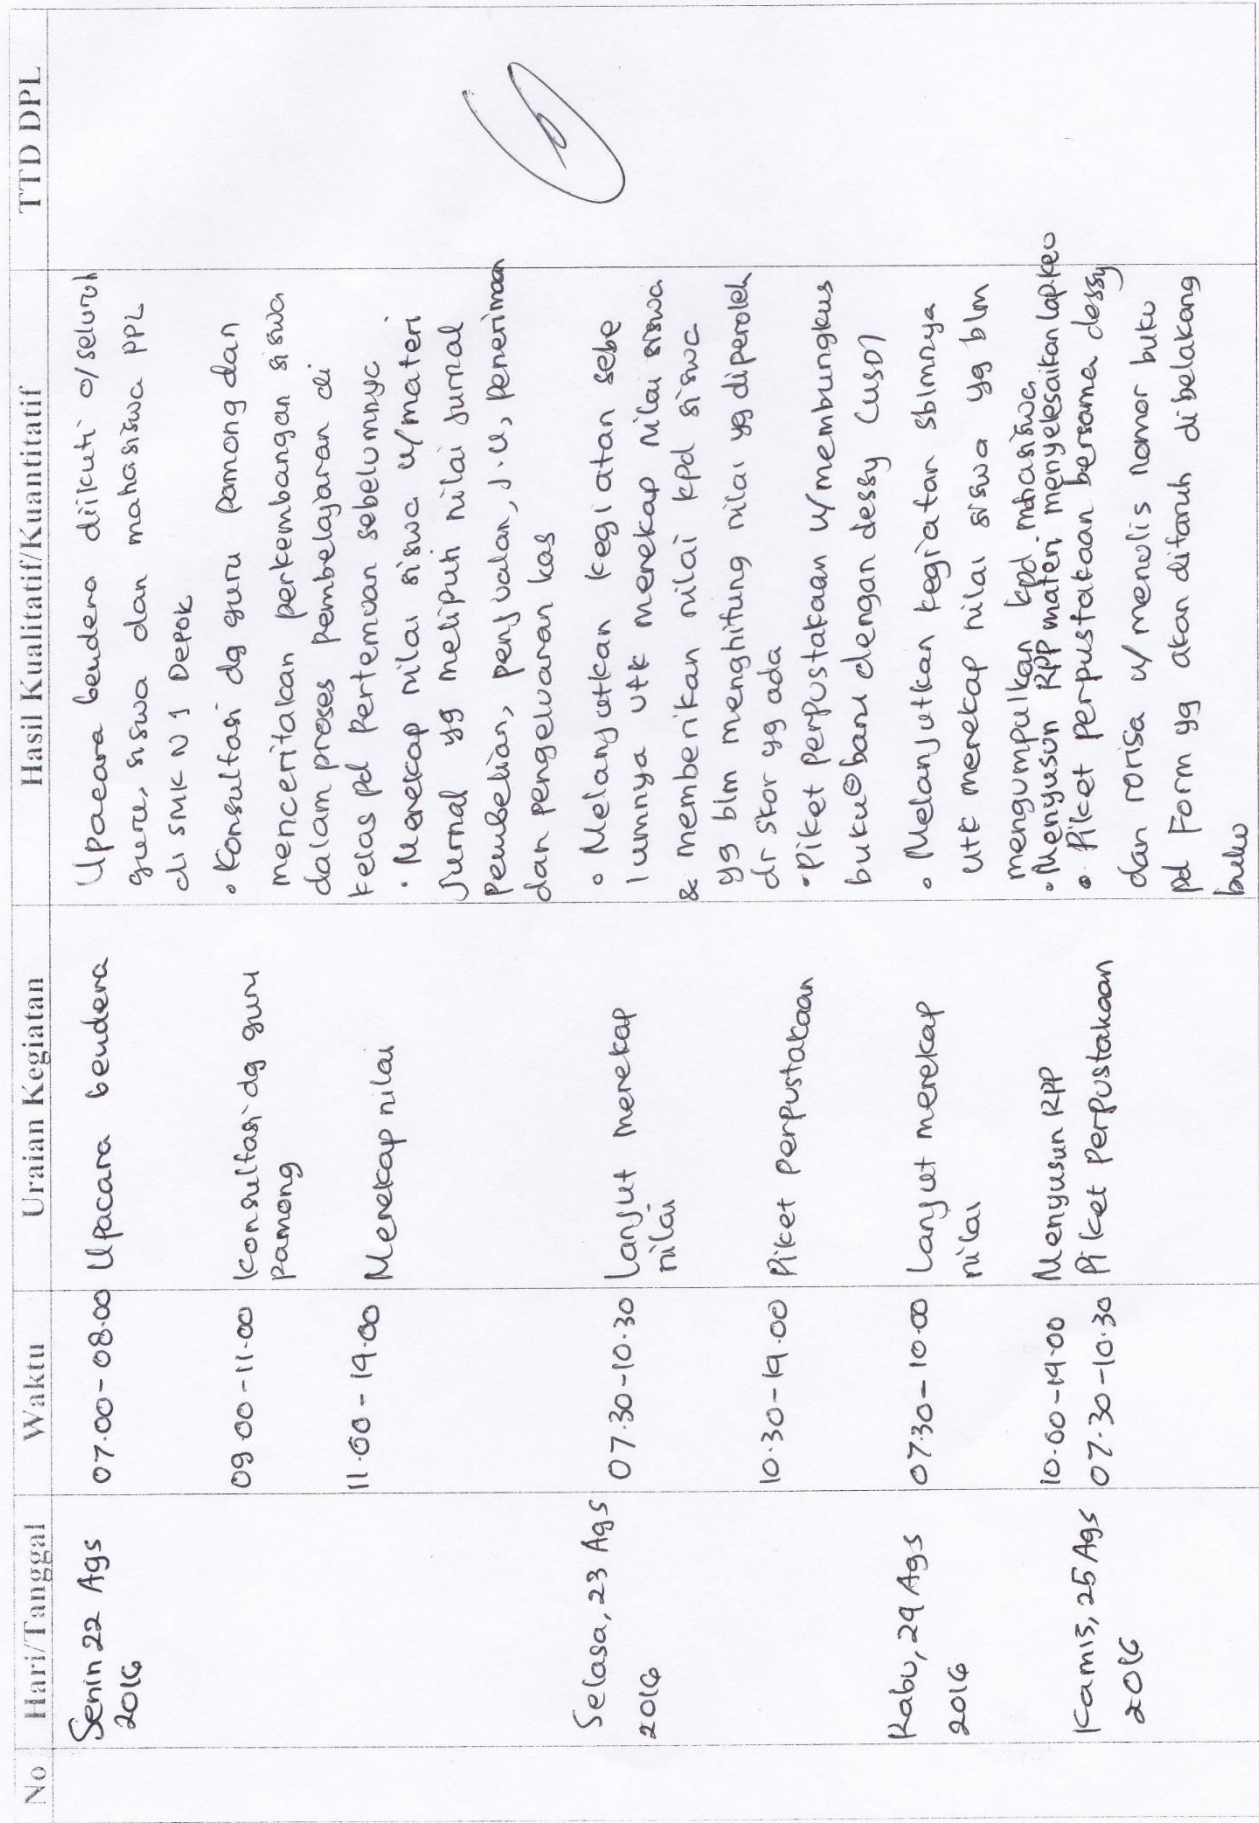 No Hari/Tanggal Waktu Uraian Kegiatan Hasil Kualitatif/Kuantitatif TTD DPL
Senin 22 Ags
2016
07.00 - 08.00
Upacara bendera
Upacara bendera diikuti o/ seluruh
guru, siswa dan mahasiswa PPL
di SMK N 1 Depok
09.00 - 11.00
Konsultasi dg guru
pamong
• Konsultasi dg guru pamong dan
menceritakan perkembangan siswa
dalam proses pembelajaran di
kelas pd pertemuan sebelumnya
11.00 - 14.00
Merekap nilai
• Merekap nilai siswa u/ materi
Jurnal yg meliputi nilai jurnal
pembelian, penjualan, J.U, penerimaan
dan pengeluaran kas
Selasa, 23 Ags
2016
07.30 - 10.30
Lanjut merekap
nilai
• Melanjutkan kegiatan sebe
lumnya utk merekap nilai siswa
& memberikan nilai kpd siswa
yg blm menghitung nilai yg diperoleh
dr skor yg ada
10.30 - 14.00
Piket perpustakaan
• Piket perpustakaan u/ membungkus
buku baru dengan dessy
Rabu, 24 Ags
2016
07.30 - 10.00
Lanjut merekap
nilai
• Melanjutkan kegiatan sblmnya
utk merekap nilai siswa yg blm
mengumpulkan kpd mahasiswa
10.00 - 14.00
Menyusun RPP
• Menyusun RPP materi menyelesaikan lap.keu
Kamis, 25 Ags
2016
07.30 - 10.30
Piket perpustakaan
• Piket perpustakaan bersama dessy
dan rorisa u/ menulis nomor buku
pd Form yg akan ditaruh dibelakang
buku